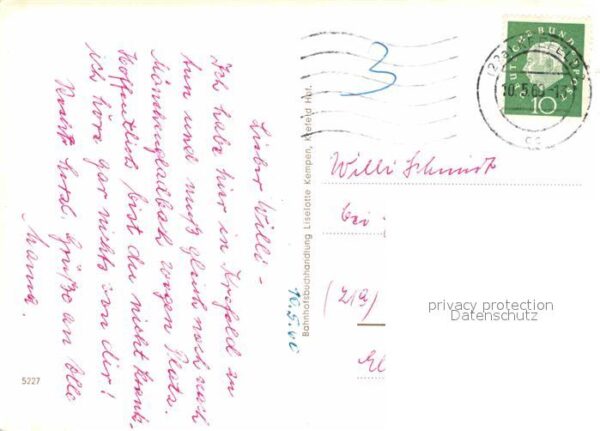 Lieber Willi –
Ich habe hier in Krefeld zu
tun und muß gleich noch nach
Mönchengladbach wegen Beata.
Hoffentlich bist du nicht krank,
ich höre gar nichts von dir!
Recht herzl. Grüße an Alle
10.5.60
Bahnhofsbuchhandlung Liselotte Kempen, Krefeld Hbf.
5227
3
DEUTSCHE BUNDESPOST
10
10.5.60
cc
Willi Schmidt
bei
(21a)
privacy protection
Datenschutz